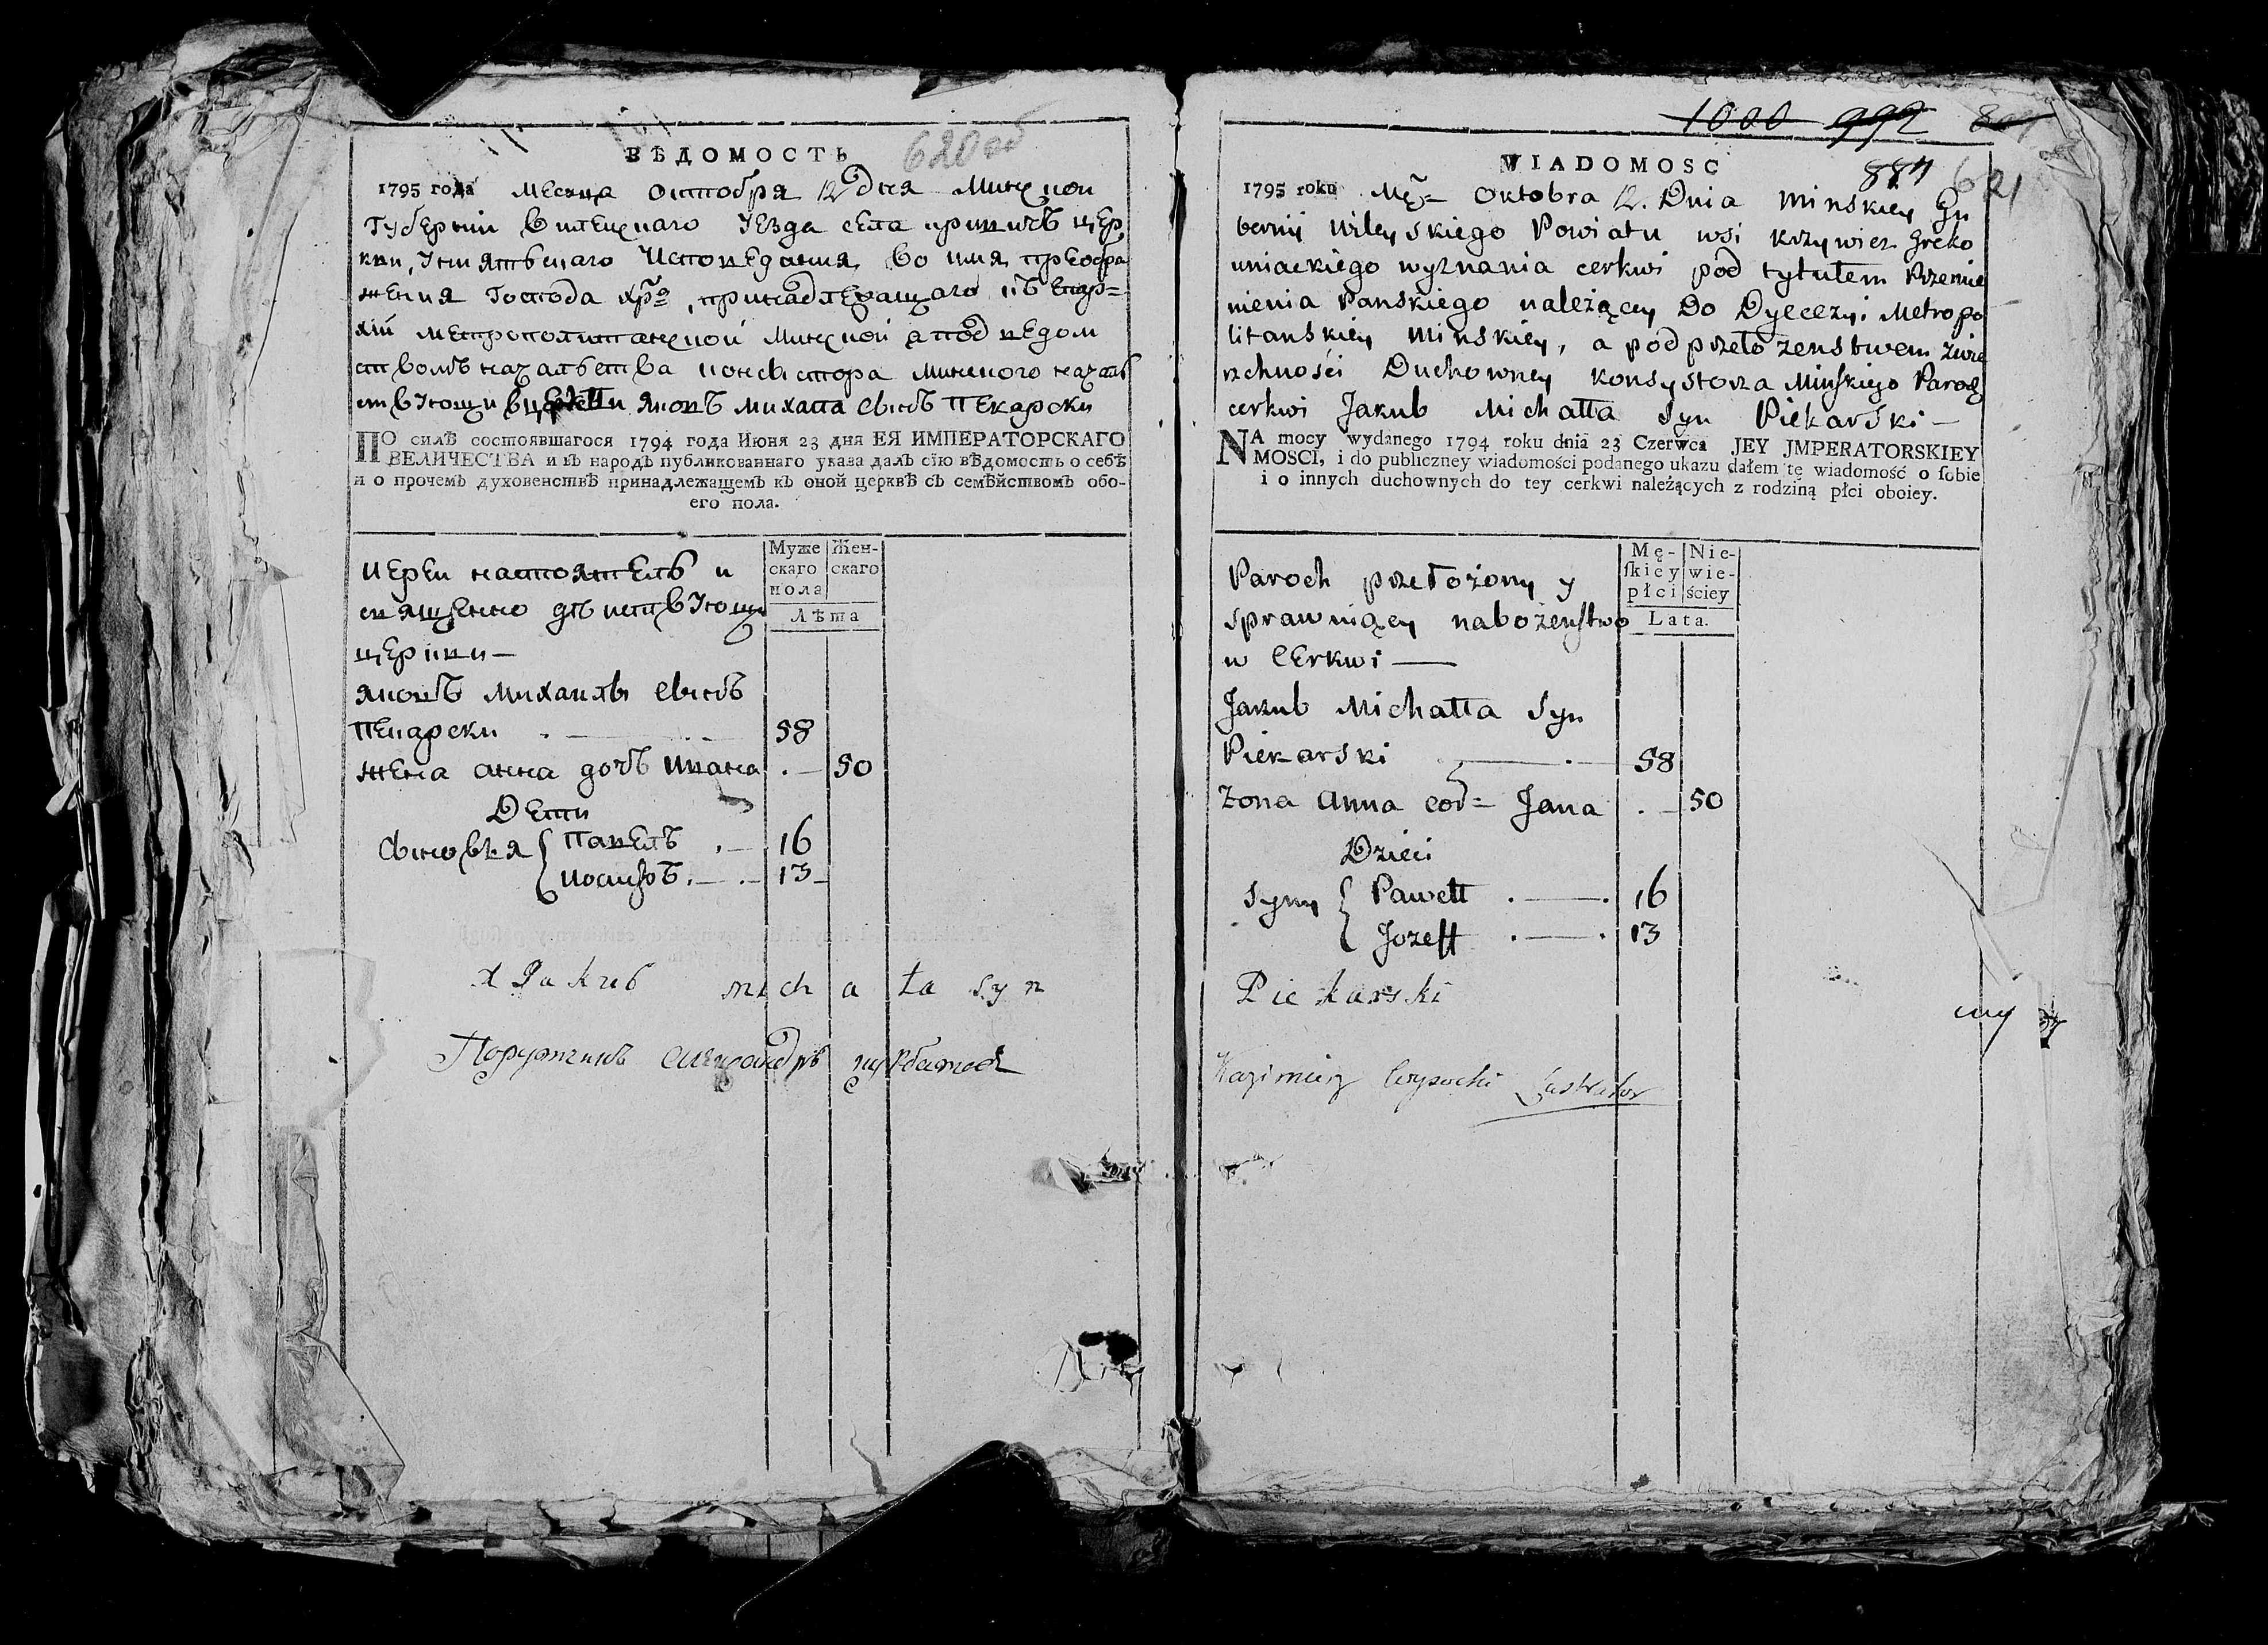 620об
ВѢДОМОСТЬ
1795 года месяца октобря 12 дня минской
губернии вилейскаго уезда села кривичъ цер
кви, униятъскаго исповедания во имя преобра
жения господа хр҃а, принадлежащаго къ епар=
хiй метрополитанской минской а под ведом
ствомъ началъства консистора минского началъ
ствующи в церкви яковъ михала сынъ пекарски
ПО силѣ состоявшагося 1794 года Июня 23 дня ЕЯ ИМПЕРАТОРСКАГО
ВЕЛИЧЕСТВА и въ народъ публикованнаго указа далъ сїю вѣдомость о себѣ
и о прочемъ духовенствѣ принадлежащемъ къ оной церквѣ съ семѣйствомъ обо-
его пола.
Муже
скаго
пола
Жен-
скаго
Лѣта
иереи настоятель и
священно действующи
церкви —
яковъ михаила сынъ
пекарски . — 58
жена анна дочъ ивана . — 50
Дети
сыновья { павелъ . — 16
иосифъ . — . — 13
X Jakub michała syn
Поручикъ александръ
1000 992
884 621
WIADOMOSC
1795 roku Mę= Oktobra 12. Dnia Minskiey Gu
bernij Wileyskiego Powiatu wsi Krzywicz Greko
uniackiego wyznania cerkwi pod tytułem Przemie
nienia Panskiego należący Do Dyecezyi Metropo
litanskiey Minskiey, a pod przełozenstwem zwie
rzchności Duchowney Konsystorza Minskiego Paroch
cerkwi Jakub Michałła Syn Piekarski —
NA mocy wydanego 1794 roku dnia 23 Czerwca JEY JMPERATORSKIEY
MOSCI, i do publiczney wiadomości podanego ukazu dałem tę wiadomość o sobie
i o innych duchownych do tey cerkwi należących z rodziną płci oboiey.
Mę-
skiey
płci
Nie-
wie-
ściey
Lata.
Paroch przełożony y
sprawuiący nabożenstwo
w cerkwi —
Jakub Michałła Syn
Piekarski — . — 58
Zona Anna cor= Jana . — 50
Dzieci
Syny { Pawełł . — . 16
Jozeff . — . 13
Piekarski
Kazimierz Wysocki Lustrator